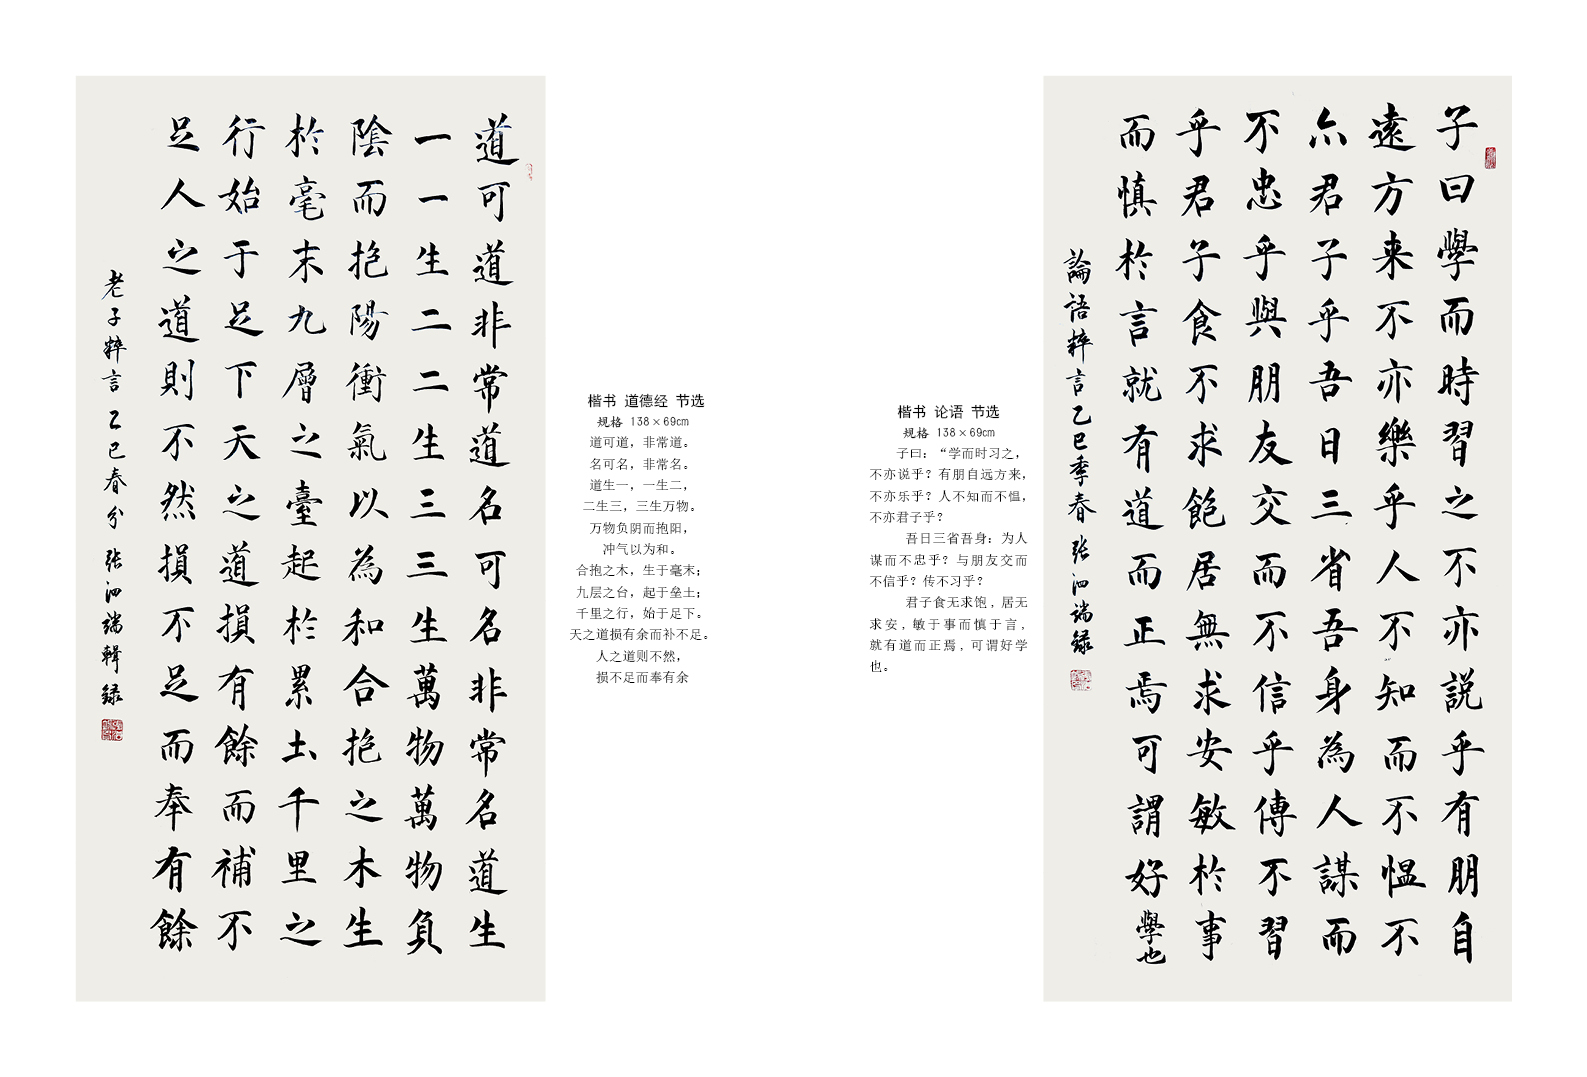 道可道非常道名可名非常名道生
一一生二二生三三生萬物萬物負
陰而抱陽衝氣以為和合抱之木生
於毫末九層之臺起於累土千里之
行始于足下天之道損有餘而補不
足人之道則不然損不足而奉有餘
老子粹言乙巳春分 张泗端輯録
楷书 道德经 节选
规格 138×69cm
道可道，非常道。
名可名，非常名。
道生一，一生二，
二生三，三生万物。
万物负阴而抱阳，
冲气以为和。
合抱之木，生于毫末；
九层之台，起于垒土；
千里之行，始于足下。
天之道损有余而补不足。
人之道则不然，
损不足而奉有余
楷书 论语 节选
规格 138×69cm
子曰：“学而时习之，
不亦说乎？有朋自远方来，
不亦乐乎？人不知而不愠，
不亦君子乎？
吾日三省吾身：为人
谋而不忠乎？与朋友交而
不信乎？传不习乎？
君子食无求饱，居无
求安，敏于事而慎于言，
就有道而正焉，可谓好学
也。
子曰學而時習之不亦説乎有朋自
遠方来不亦樂乎人不知而不愠不
亦君子乎吾日三省吾身為人謀而
不忠乎與朋友交而不信乎傳不習
乎君子食不求飽居無求安敏於事
而慎於言就有道而正焉可謂好學也
論語粹言乙巳季春 张泗端録